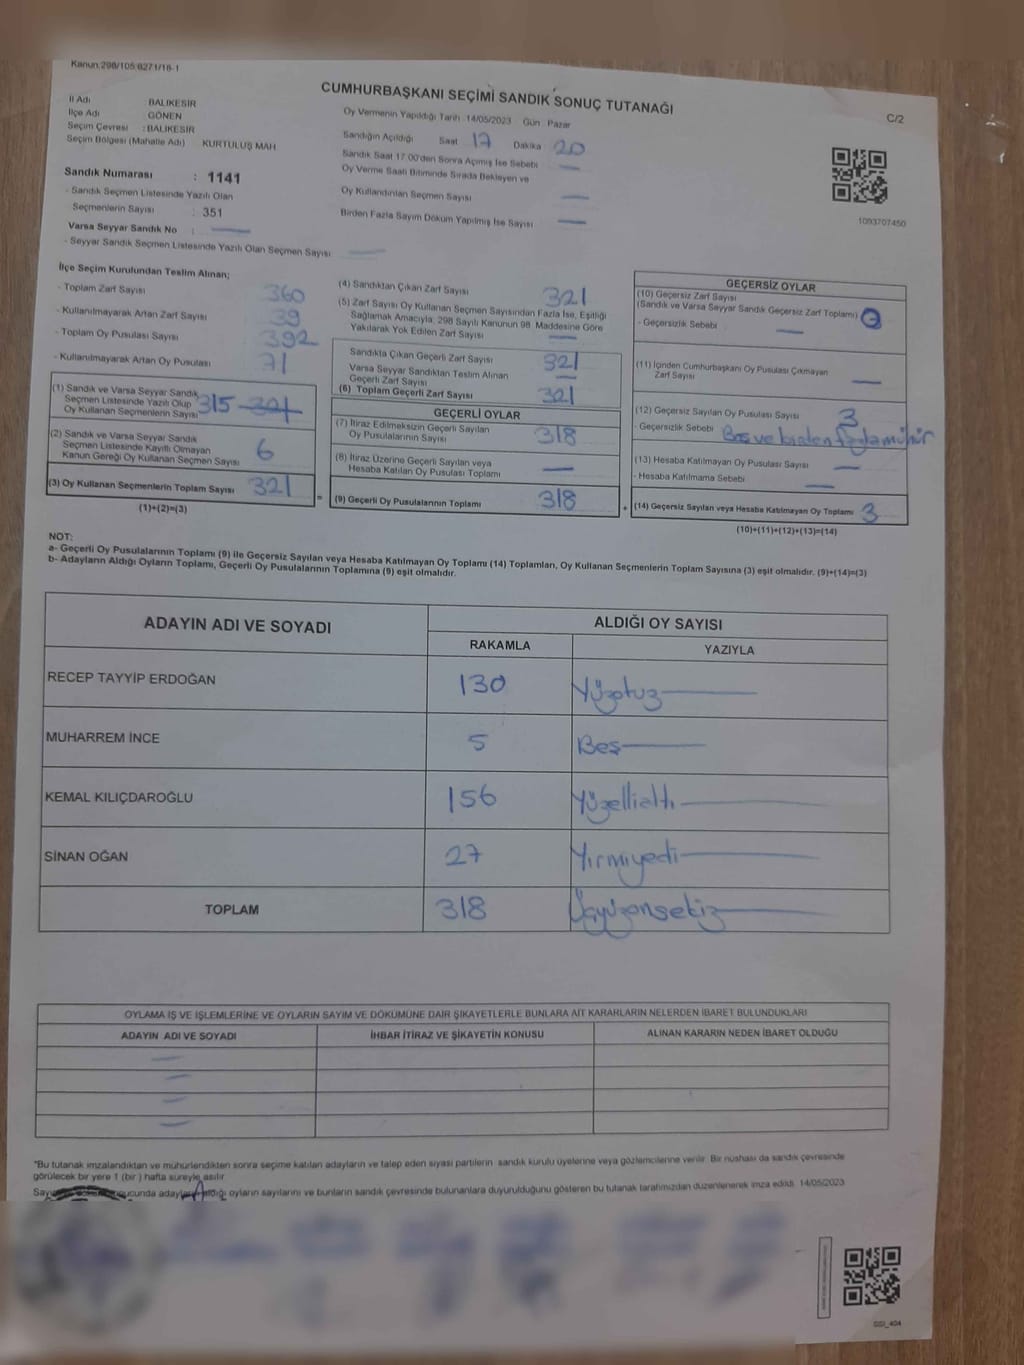 Kanun:298/105:6271/18-1
CUMHURBAŞKANI SEÇİMİ SANDIK SONUÇ TUTANAĞI
C/2
İl Adı : BALIKESİR
İlçe Adı : GÖNEN
Seçim Çevresi : BALIKESİR
Seçim Bölgesi (Mahalle Adı) KURTULUŞ MAH
Sandık Numarası : 1141
- Sandık Seçmen Listesinde Yazılı Olan
Seçmenlerin Sayısı : 351
Varsa Seyyar Sandık No :
- Seyyar Sandık Seçmen Listesinde Yazılı Olan Seçmen Sayısı :
Oy Vermenin Yapıldığı Tarih :14/05/2023 Gün Pazar
Sandığın Açıldığı Saat 17 Dakika : 20
Sandık Saat 17.00'den Sonra Açılmış İse Sebebi
Oy Verme Saati Bitiminde Sırada Bekleyen ve
Oy Kullandırılan Seçmen Sayısı
Birden Fazla Sayım Döküm Yapılmış İse Sayısı
1093707450
İlçe Seçim Kurulundan Teslim Alınan;
- Toplam Zarf Sayısı 360
- Kullanılmayarak Artan Zarf Sayısı 39
- Toplam Oy Pusulası Sayısı 392
- Kullanılmayarak Artan Oy Pusulası 71
(1) Sandık ve Varsa Seyyar Sandık
Seçmen Listesinde Yazılı Olup
Oy Kullanan Seçmenlerin Sayısı 315 321
(2) Sandık ve Varsa Seyyar Sandık
Seçmen Listesinde Kayıtlı Olmayan
Kanun Gereği Oy Kullanan Seçmen Sayısı 6
(3) Oy Kullanan Seçmenlerin Toplam Sayısı 321
(1)+(2)=(3)
(4) Sandıktan Çıkan Zarf Sayısı 321
(5) Zarf Sayısı Oy Kullanan Seçmen Sayısından Fazla İse, Eşitliği
Sağlamak Amacıyla; 298 Sayılı Kanunun 98. Maddesine Göre
Yakılarak Yok Edilen Zarf Sayısı
Sandıkta Çıkan Geçerli Zarf Sayısı 321
Varsa Seyyar Sandıktan Teslim Alınan
Geçerli Zarf Sayısı
(6) Toplam Geçerli Zarf Sayısı 321
GEÇERLİ OYLAR
(7) İtiraz Edilmeksizin Geçerli Sayılan
Oy Pusulalarının Sayısı 318
(8) İtiraz Üzerine Geçerli Sayılan veya
Hesaba Katılan Oy Pusulası Toplamı
(9) Geçerli Oy Pusulalarının Toplamı 318
=
+
GEÇERSİZ OYLAR
(10) Geçersiz Zarf Sayısı
(Sandık ve Varsa Seyyar Sandık Geçersiz Zarf Toplamı)
- Geçersizlik Sebebi
(11) İçinden Cumhurbaşkanı Oy Pusulası Çıkmayan
Zarf Sayısı
(12) Geçersiz Sayılan Oy Pusulası Sayısı 3
- Geçersizlik Sebebi Boş ve birden fazla mühür
(13) Hesaba Katılmayan Oy Pusulası Sayısı
- Hesaba Katılmama Sebebi
(14) Geçersiz Sayılan veya Hesaba Katılmayan Oy Toplamı 3
(10)+(11)+(12)+(13)=(14)
NOT:
a- Geçerli Oy Pusulalarının Toplamı (9) ile Geçersiz Sayılan veya Hesaba Katılmayan Oy Toplamı (14) Toplamları, Oy Kullanan Seçmenlerin Toplam Sayısına (3) eşit olmalıdır. (9)+(14)=(3)
b- Adayların Aldığı Oyların Toplamı, Geçerli Oy Pusulalarının Toplamına (9) eşit olmalıdır.
ADAYIN ADI VE SOYADI
ALDIĞI OY SAYISI
RAKAMLA YAZIYLA
RECEP TAYYİP ERDOĞAN 130 Yüzotuz
MUHARREM İNCE 5 Beş
KEMAL KILIÇDAROĞLU 156 Yüzellialtı
SİNAN OĞAN 27 Yirmiyedi
TOPLAM 318 Üçyüzonsekiz
OYLAMA İŞ VE İŞLEMLERİNE VE OYLARIN SAYIM VE DÖKÜMÜNE DAİR ŞİKAYETLERLE BUNLARA AİT KARARLARIN NELERDEN İBARET BULUNDUKLARI
ADAYIN ADI VE SOYADI İHBAR İTİRAZ VE ŞİKAYETİN KONUSU ALINAN KARARIN NEDEN İBARET OLDUĞU
*Bu tutanak imzalandıktan ve mühürlendikten sonra seçime katılan adayların ve talep eden siyasi partilerin sandık kurulu üyelerine veya gözlemcilerine verilir. Bir nüshası da sandık çevresinde
görülecek bir yere 1 (bir ) hafta süreyle asılır.
adayların aldığı oyların sayılarını ve bunların sandık çevresinde bulunanlara duyurulduğunu gösteren bu tutanak tarafımızdan düzenlenerek imza edildi. 14/05/2023